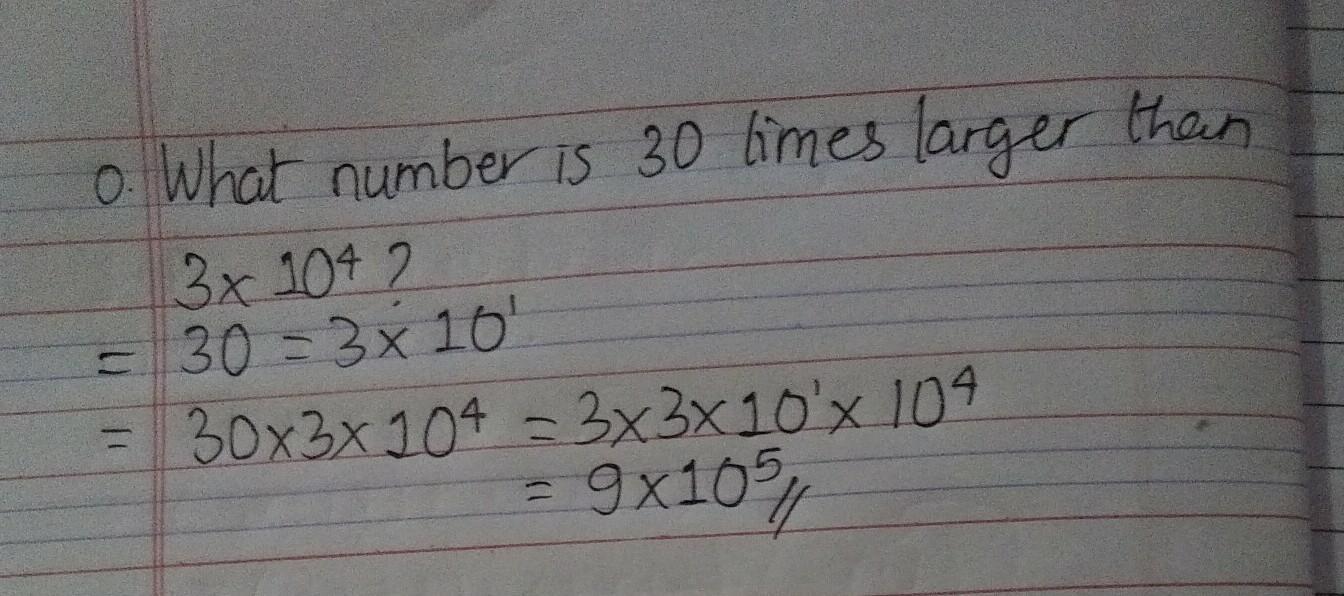 0. What number is 30 times larger than
3x 10⁴ ?
= 30 = 3x 10¹
= 30x3x10⁴ = 3x3x10¹x 10⁴
= 9x10⁵//